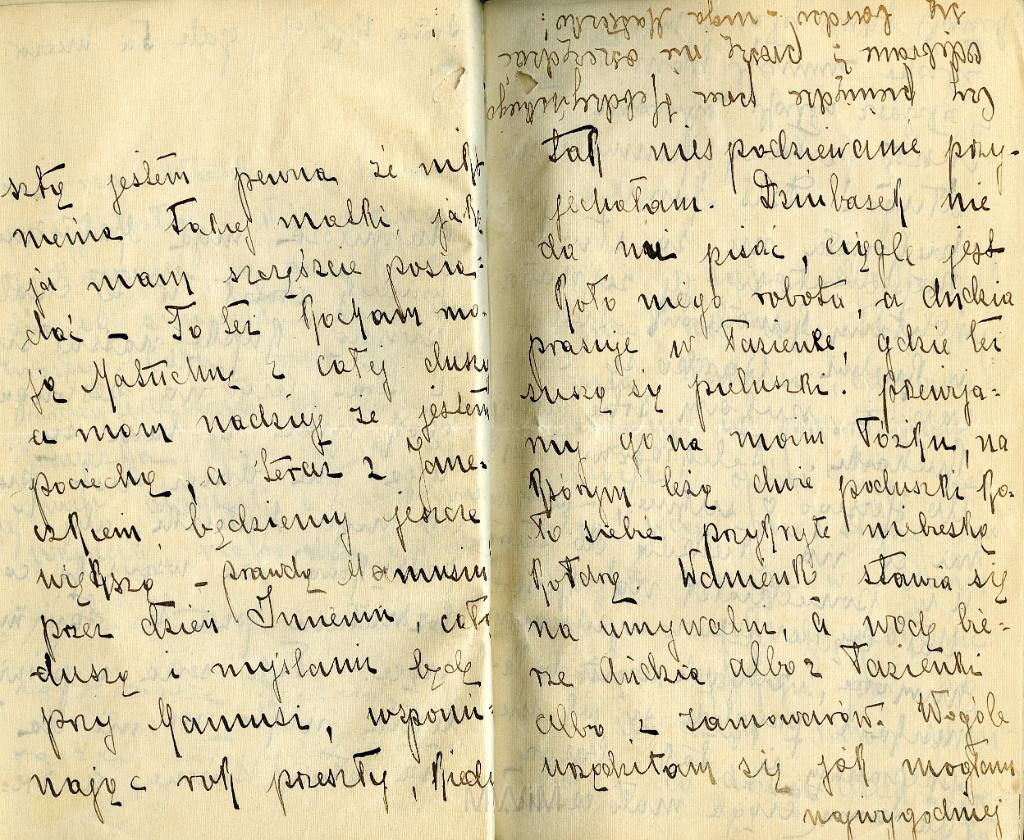 szłą jestem pewna że nikt
niema takiej matki, jaką
ja mam szczęście posia=
dać – To też kocham mo-
ją Matuchnę z całej duszy
a mam nadzieję że jestem
pociechą, a teraz z Jane-
czkiem, będziemy jeszcze
większą – prawda Mamusiu
przez dzień Imienin, całą
duszą i myślami będę
przy Mamusi, wspomi-
nając rok przeszły, kiedy
tak niespodziewanie przy-
jechałam. Dziubasek nie
da mi pisać, ciągle jest
koło niego robota, a dzidzia
prasuje w łazience, gdzie też
suszą się pieluszki. Przewija=
my go na moim łóżku, na
którym leżą dwie poduszki ko-
ło siebie przykryte niebieską
kołdrą. Wanienk stawia się
na umywalni, a wodę bie=
rze dzidzia albo z łazienki
albo z samowarów. Wogóle
urządziłam się jak mogłam
najwygodniej
Czy pieniądze pan
odebrano? proszę nie oszczędzać
się bardzo – moja Mateczko!